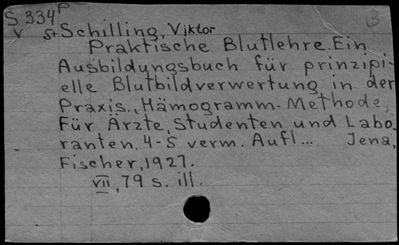 S 334 P
V St Schilling, Viktor
Praktische Blutlehre. Ein
Ausbildungsbuch für prinzipi-
elle Blutbildverwertung in der
Praxis., Hämogramm-Methode,
Für Ärzte, Studenten und Labo-
ranten. 4-5 verm. Aufl... Jena,
Fischer, 1927.
VII, 79 s. ill.